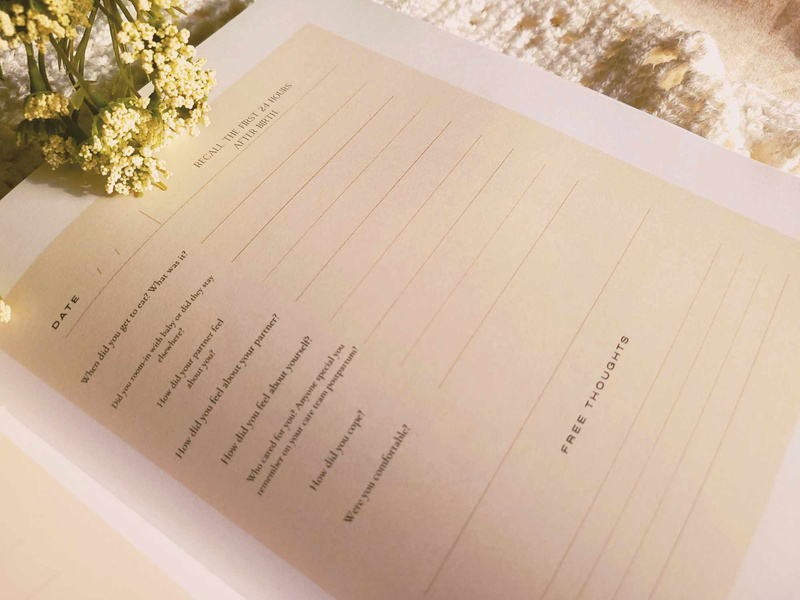 DATE / /
RECALL THE FIRST 24 HOURS
AFTER BIRTH
When did you get to eat? What was it?
Did you room-in with baby or did they stay
elsewhere?
How did your partner feel
about you?
How did you feel about your partner?
How did you feel about yourself?
Who cared for you? Anyone special you
remember on your care team postpartum?
How did you cope?
Were you comfortable?
FREE THOUGHTS